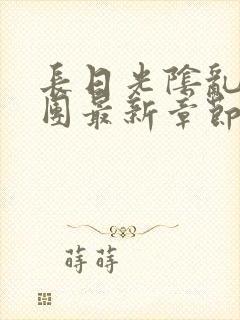 長日光陰亂
園最新章節
蒔蒔